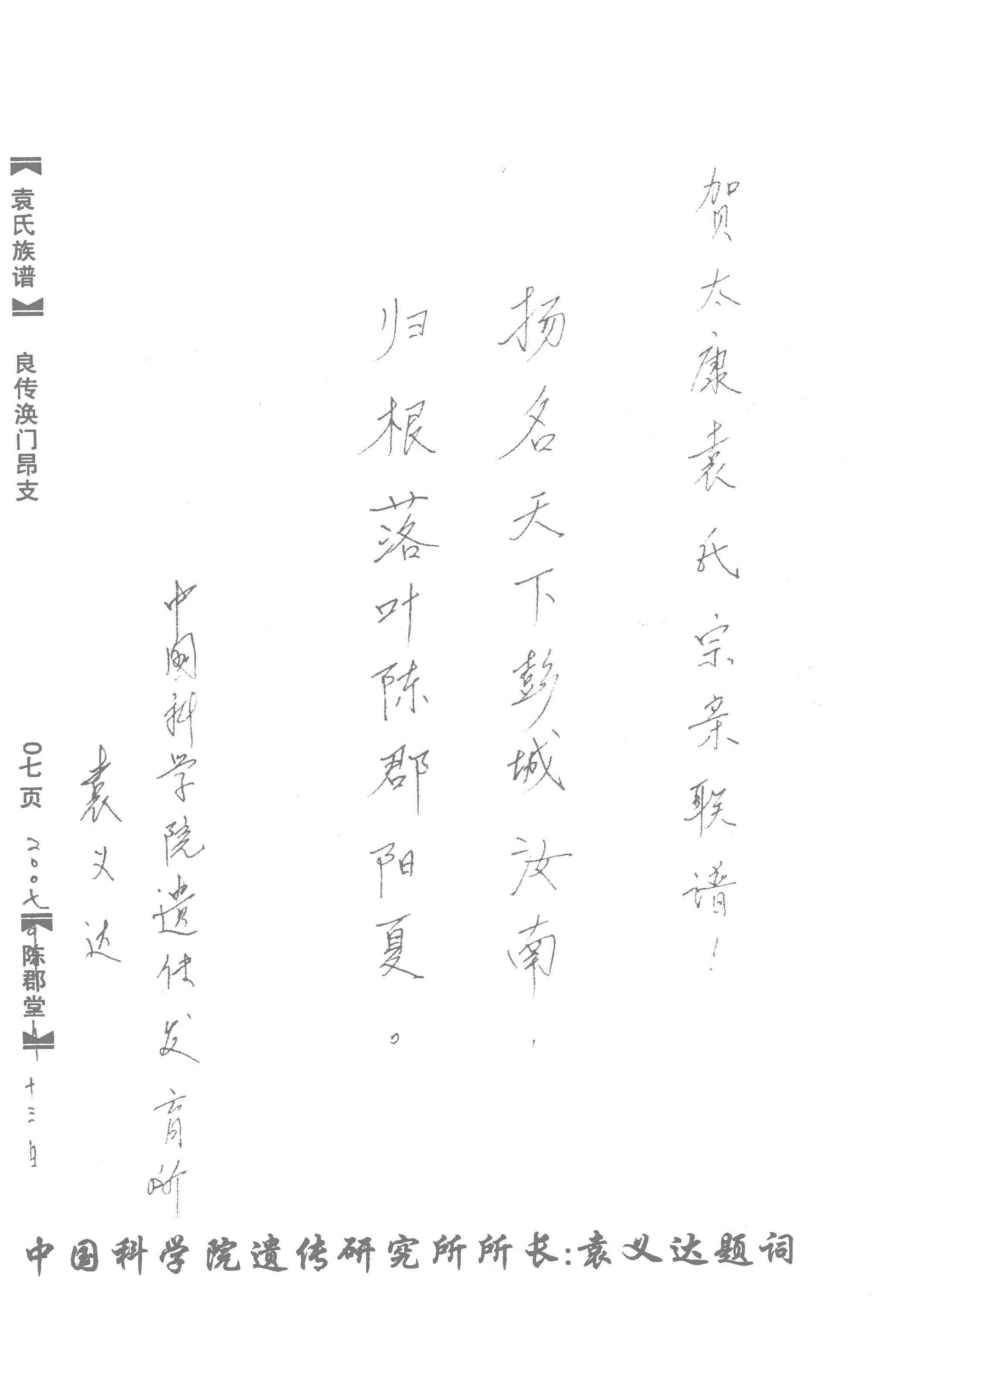 贺太康袁氏宗亲联谱!
扬名天下彭城汝南,
归根落叶陈郡阳夏。
中国科学院遗传发育所
袁义达
二〇〇七
十三日
【袁氏族谱】 良传涣门昂支
〇七页
【陈郡堂】
中国科学院遗传研究所所长:袁义达题词